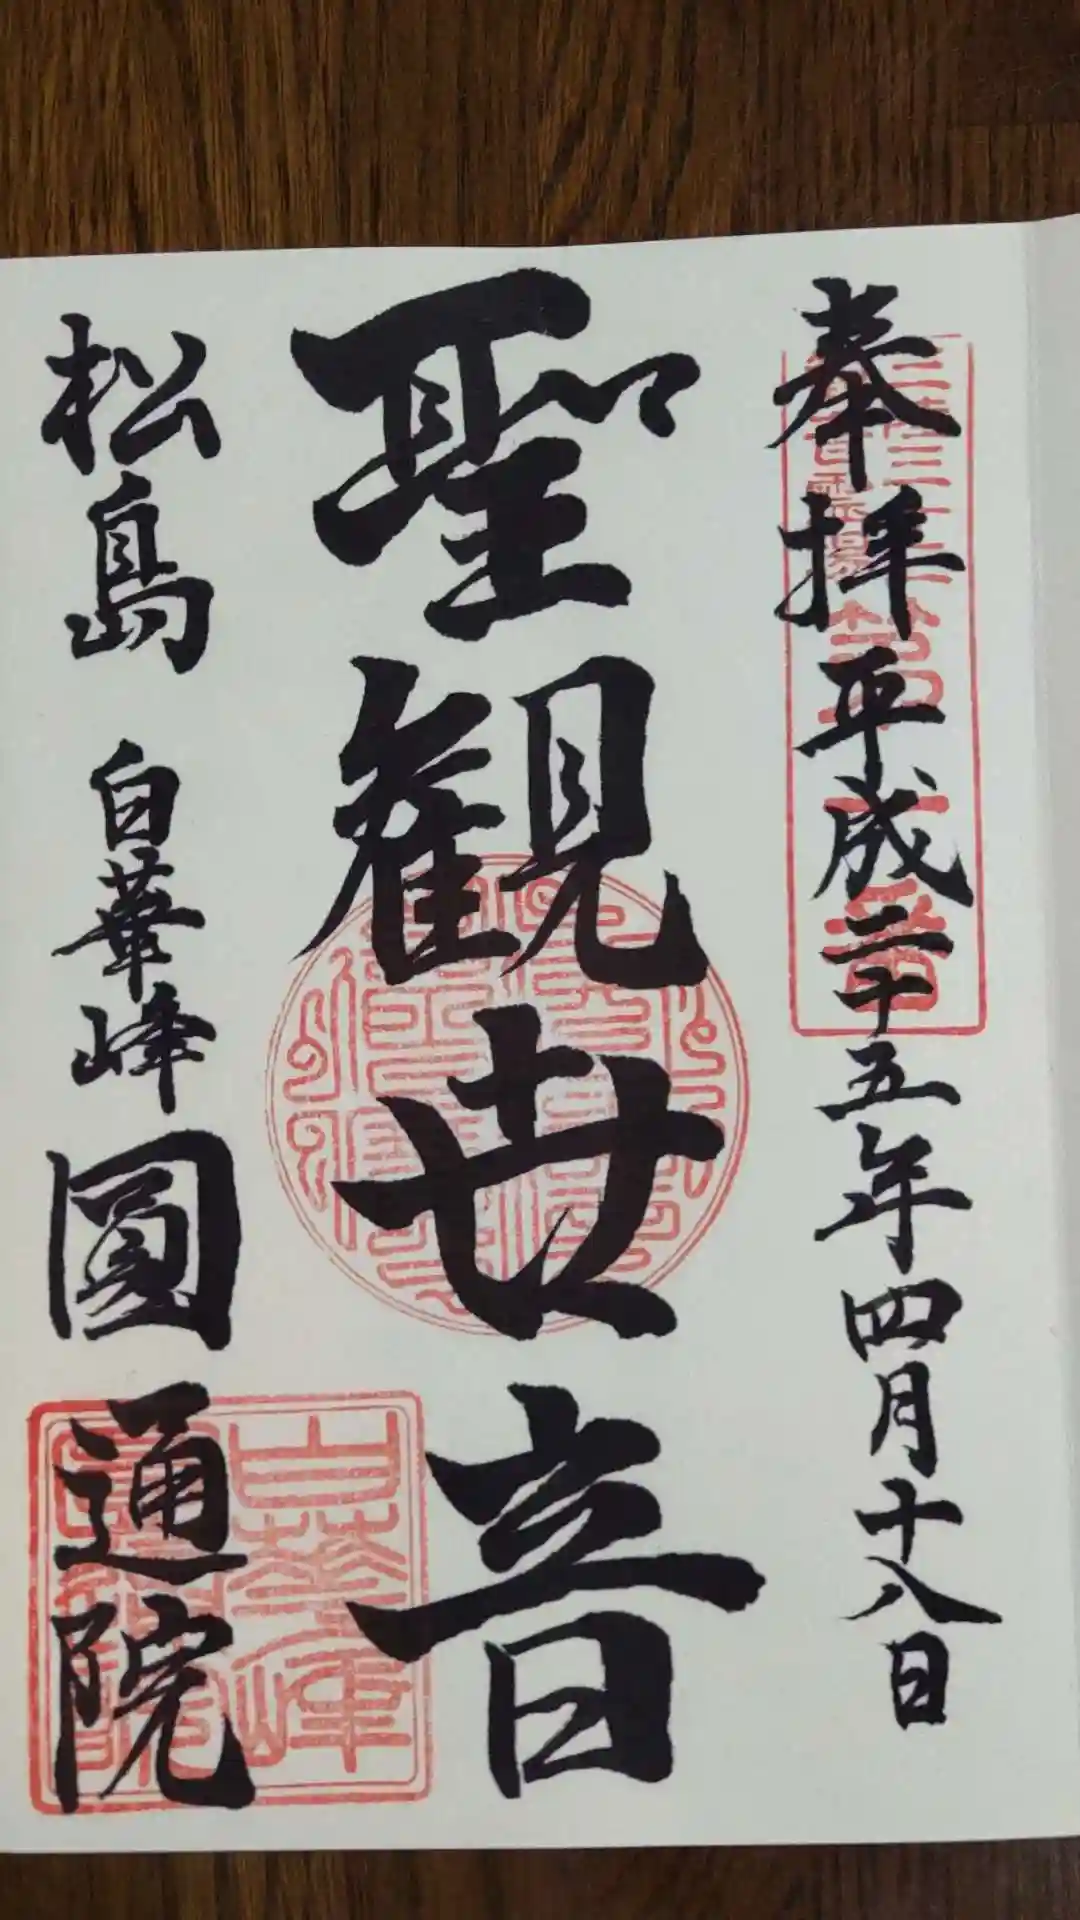 奉拝 平成二十五年四月十八日
聖観世音
松島 白華峰 圓通院
白華峰